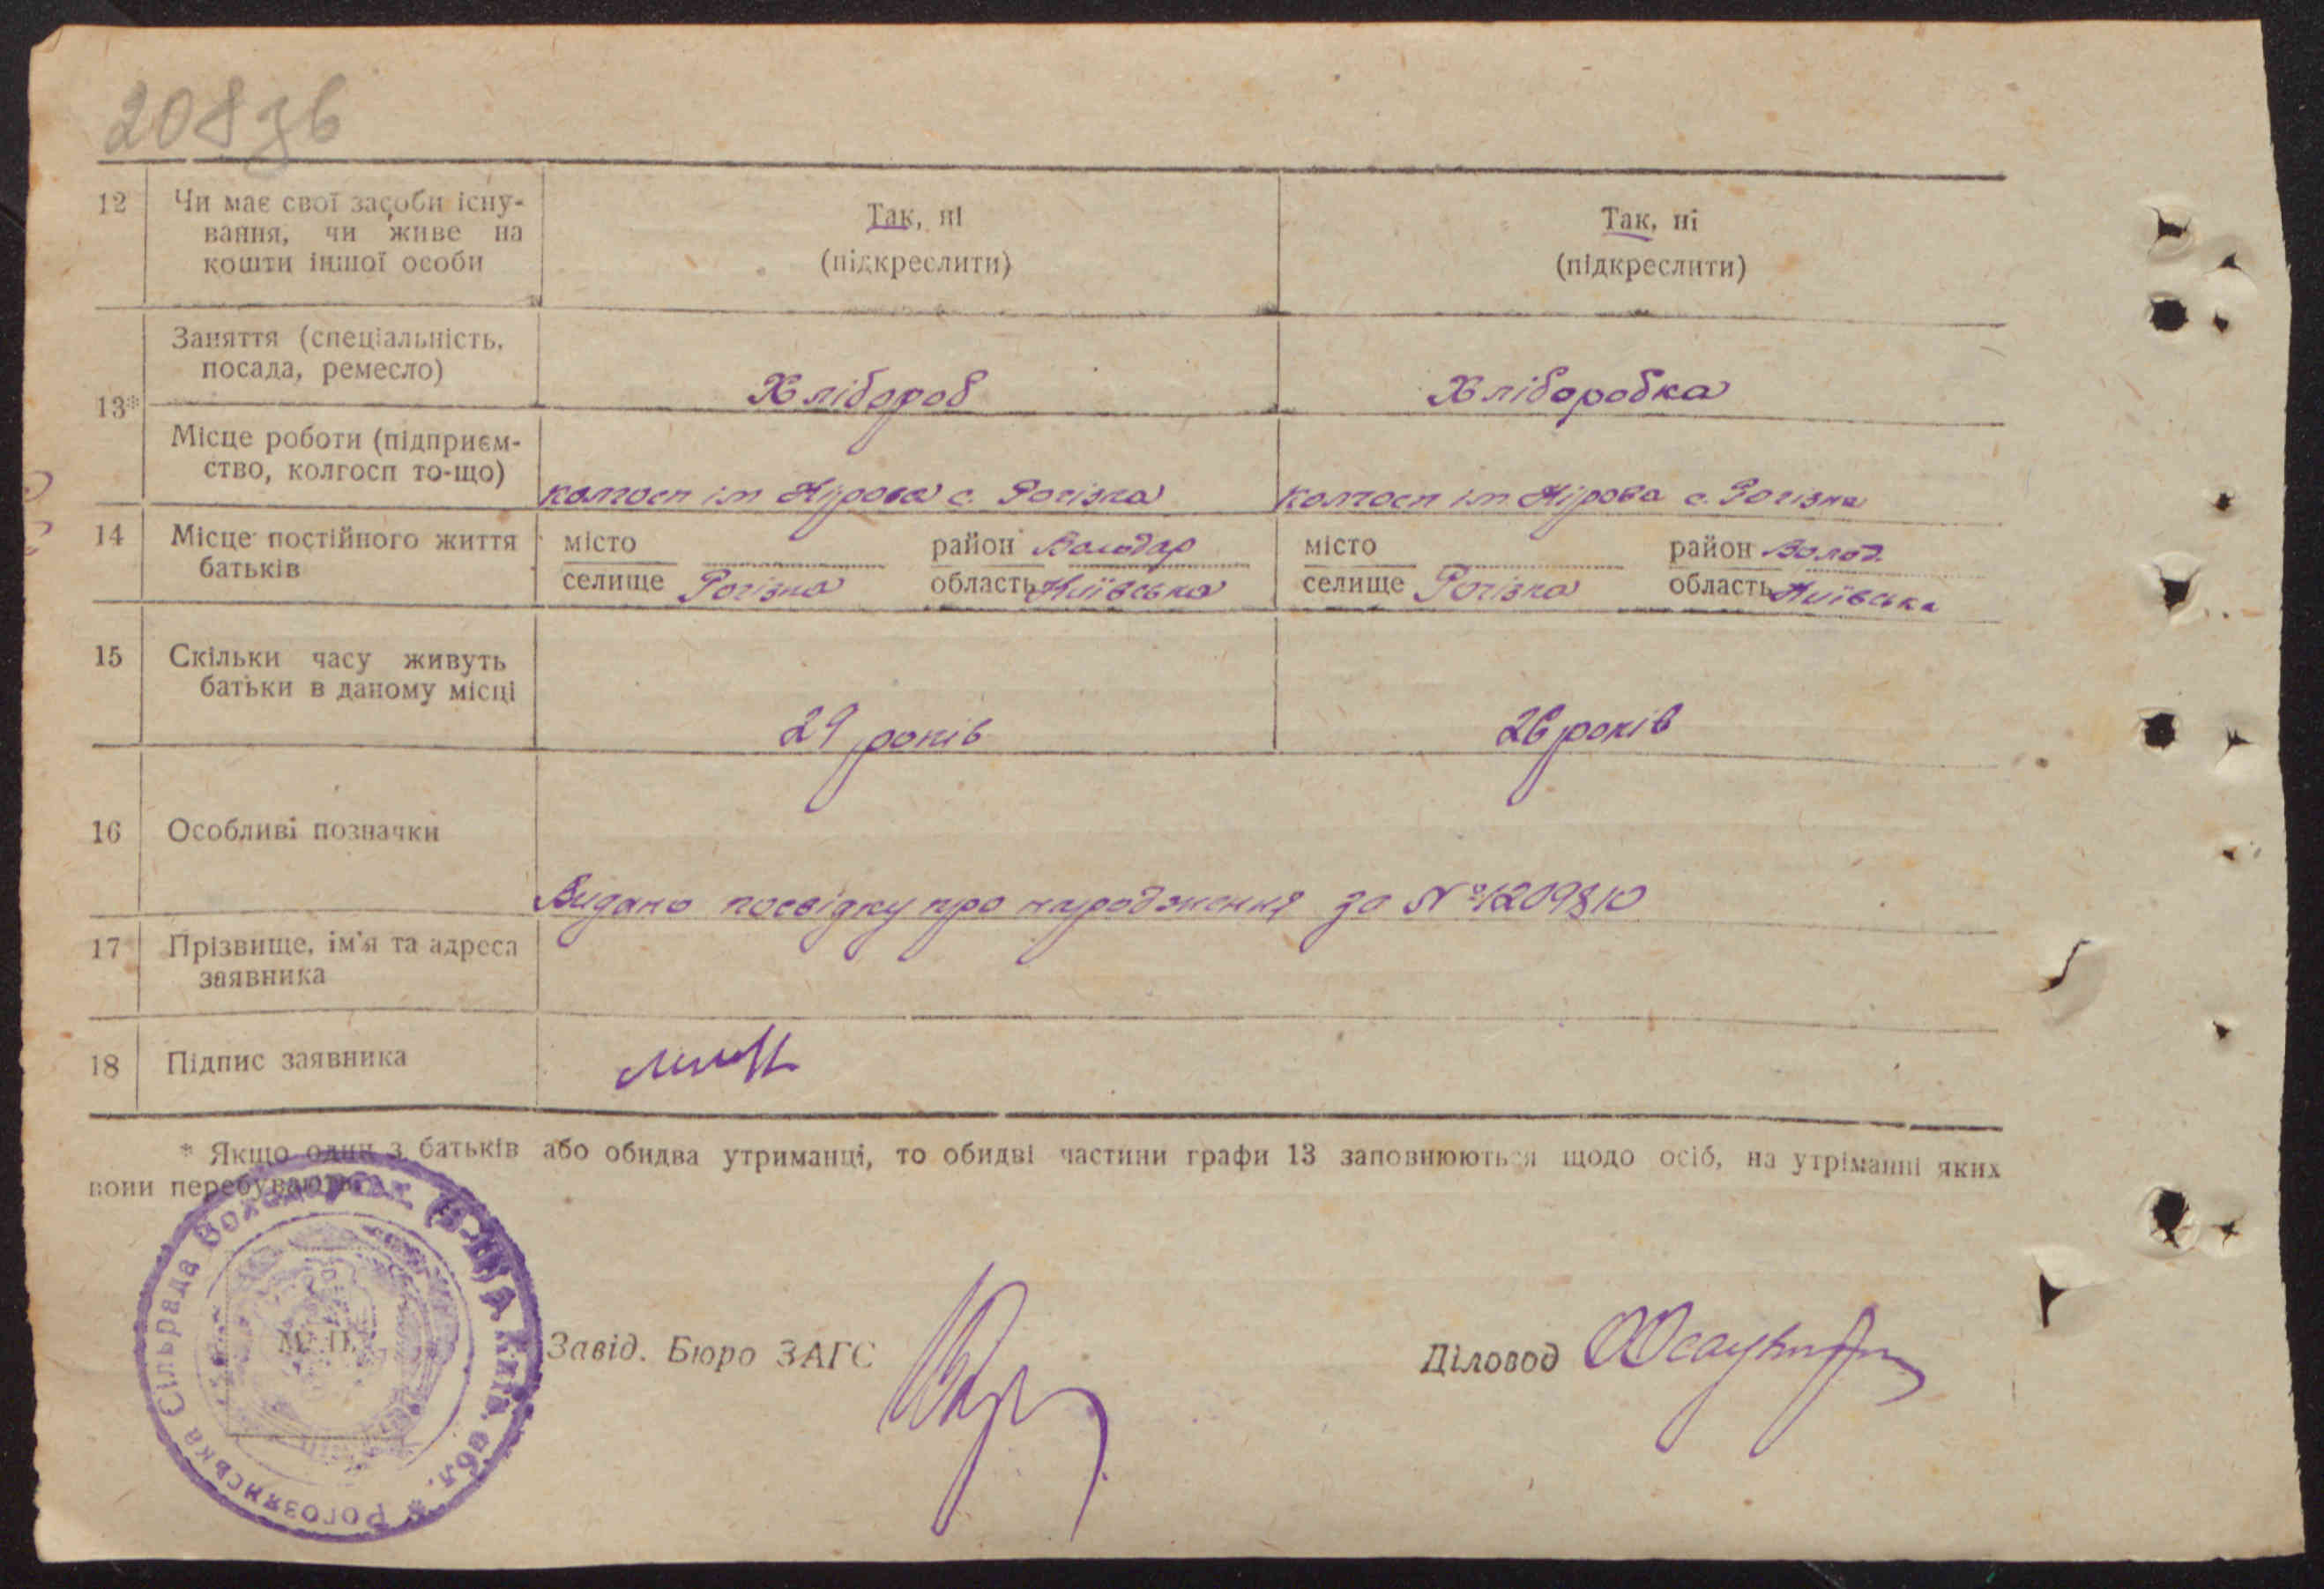 208зв
12 Чи має свої засоби існу-
вання, чи живе на
кошти іншої особи
Так, ні
(підкреслити)
Так, ні
(підкреслити)
13*
Заняття (спеціальність,
посада, ремесло)
Хлібороб
Хліборобка
Місце роботи (підприєм-
ство, колгосп то-що)
колгосп ім Кірова с. Рогізна
колгосп ім Кірова с. Рогізна
14 Місце постійного життя
батьків
місто район Володар
селище Рогізна область Київська
місто район Волод.
селище Рогізна область Київська
15 Скільки часу живуть
батьки в даному місці
29 років
26 років
16 Особливі позначки
Видано посвідку про народження за №
17 Прізвище, ім'я та адреса
заявника
18 Підпис заявника
* Якщо один з батьків або обидва утриманці, то обидві частини графи 13 заповнюються щодо осіб, на утріманні яких
вони перебувають.
Рогозянська Сільрада Київ. обл.
М. П.
Завід. Бюро ЗАГС
Діловод